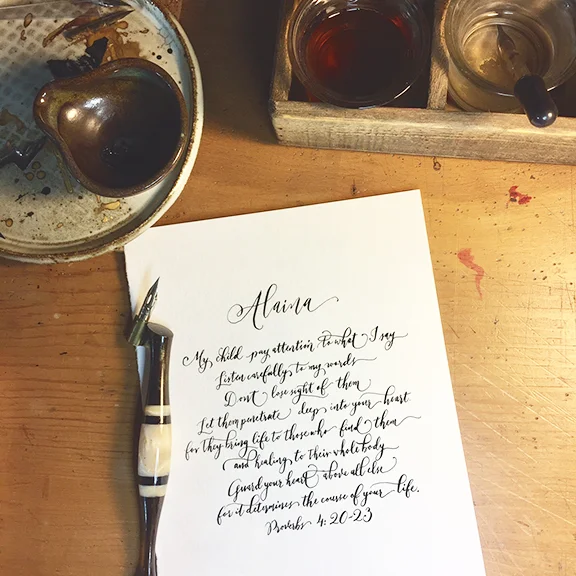 Alaina
My child pay attention to what I say
Listen carefully to my words
Don't lose sight of them
Let them penetrate deep into your heart
for they bring life to those who find them
and healing to their whole body
Guard your heart above all else
for it determines the course of your life.
Proverbs 4:20-23